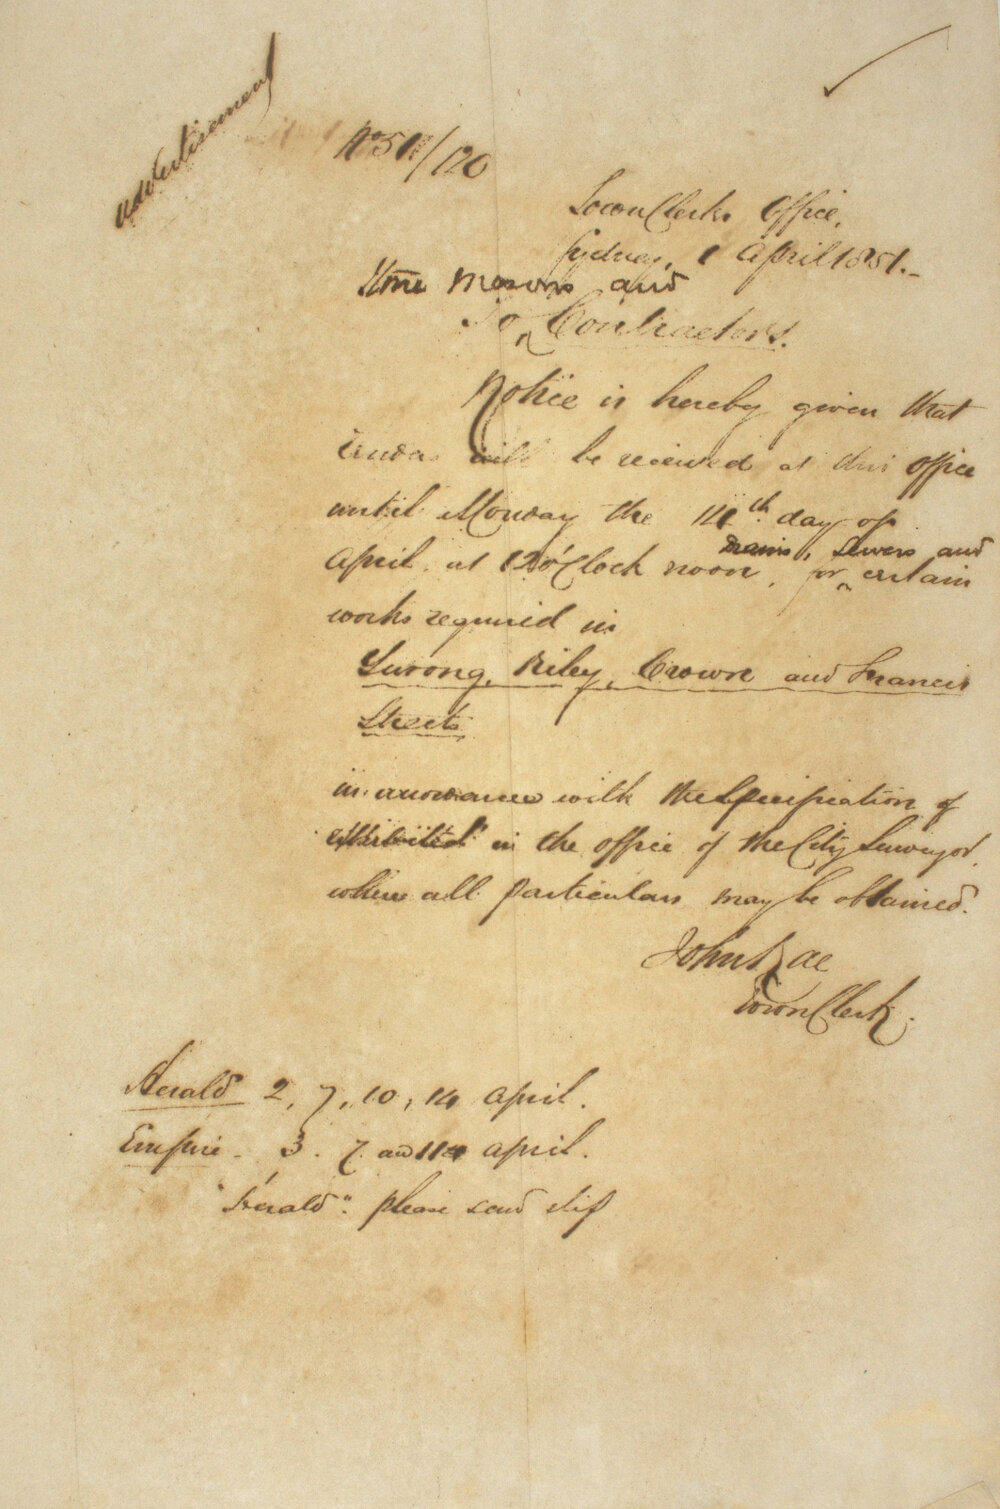 Advertisement
No 51/120
Town Clerks Office,
Sydney, 1 April 1851.
Stone Masons and
To ^ Contractors.
Notice is hereby given that
Tenders will be received at this office
until Monday the 14th day of
April, at 12 o'Clock noon, for ^ certain
Drains, Sewers and
works required in
Yurong, Riley, Crown and Francis
Streets,
in accordance with the Specification
exhibited in the office of the City Surveyor,
where all particulars may be obtained.
John Rae
Town Clerk.
Herald 2, 7, 10, 14 April.
Empire. 3. 7. and April.
"Herald" please send slip